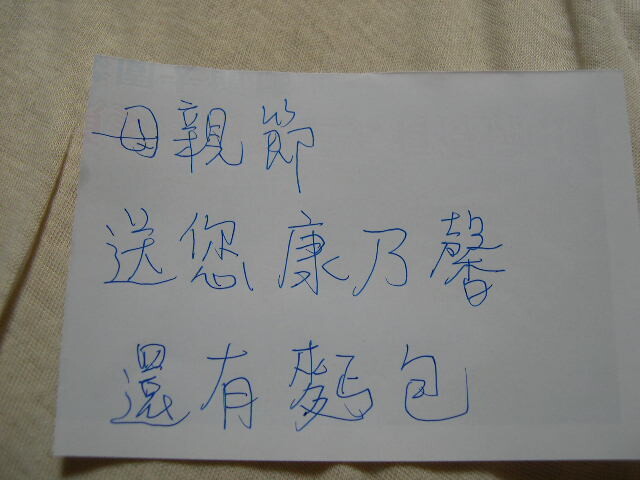 母親節
送您康乃馨
還有麵包